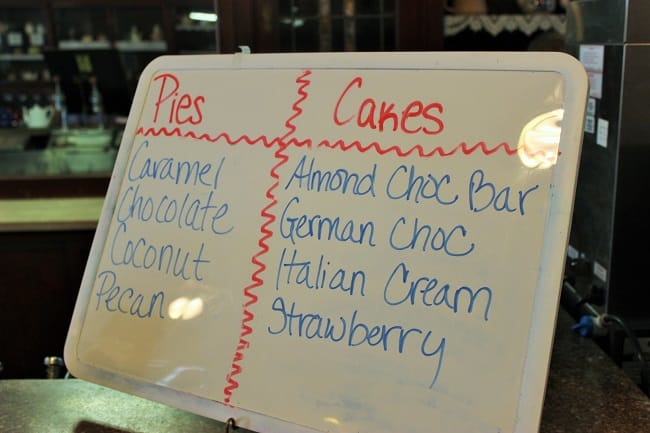 Pies
Caramel
Chocolate
Coconut
Pecan
Cakes
Almond Choc Bar
German Choc
Italian Cream
Strawberry